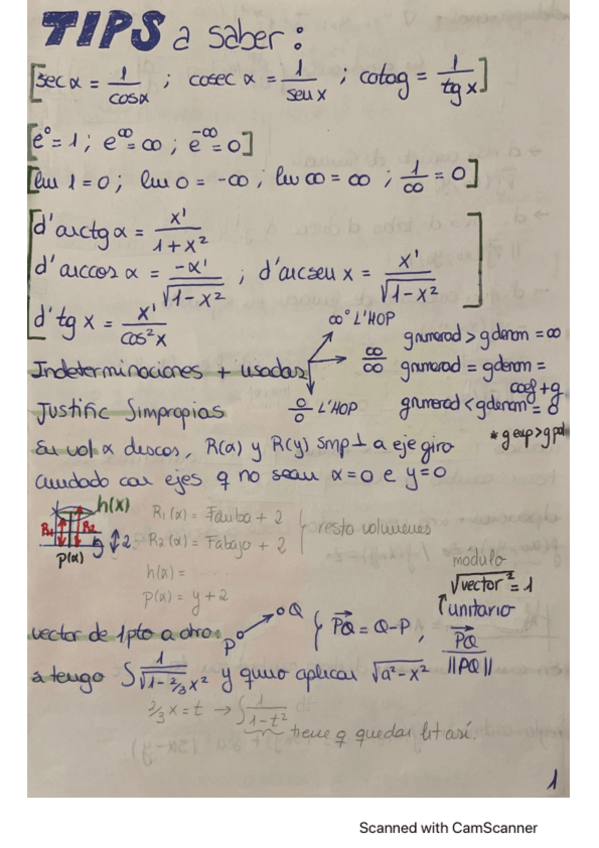 TIPS a saber:
[sec α = 1/cosα ; cosec α = 1/seu x ; cotag = 1/tg x]
[e⁰ = 1 ; e^∞ = ∞ ; e^-∞ = 0]
[lu 1 = 0 ; lu 0 = -∞ ; lu ∞ = ∞ ; 1/∞ = 0]
[d'arctg α = x'/1+x²
d'arccos α = -α'/√1-x² ; d'arcseu x = x'/√1-x²
d'tg x = x'/cos²x]
∞⁰ L'HOP
Indeterminaciones + usadas
∞/∞ gnumerad > gdenom = ∞
gnumerad = gdenom = coef + g
0/0 L'HOP gnumerad < gdenom = 0
* g exp > g pol
Justific Simpropias
Eu vol α discos, R(α) y R(y) smp ⊥ a eje giro
cuidado con ejes q no sean α=0 e y=0
h(x)
R1 R2 2
p(α)
R₁(α) = Farriba + 2
R₂(α) = Fabajo + 2
resto volumenes
h(α) =
p(α) = y + 2
módulo
√vector² = 1
unitario
vector de 1pto a otro: P Q { PQ = Q-P , PQ/||PQ||
a tengo ∫ 1/√1-2/3x² y quiero aplicar √a²-x²
2/3 x = t → ∫ 1/1-t² dt
tiene q quedar lit así.
1
Scanned with CamScanner